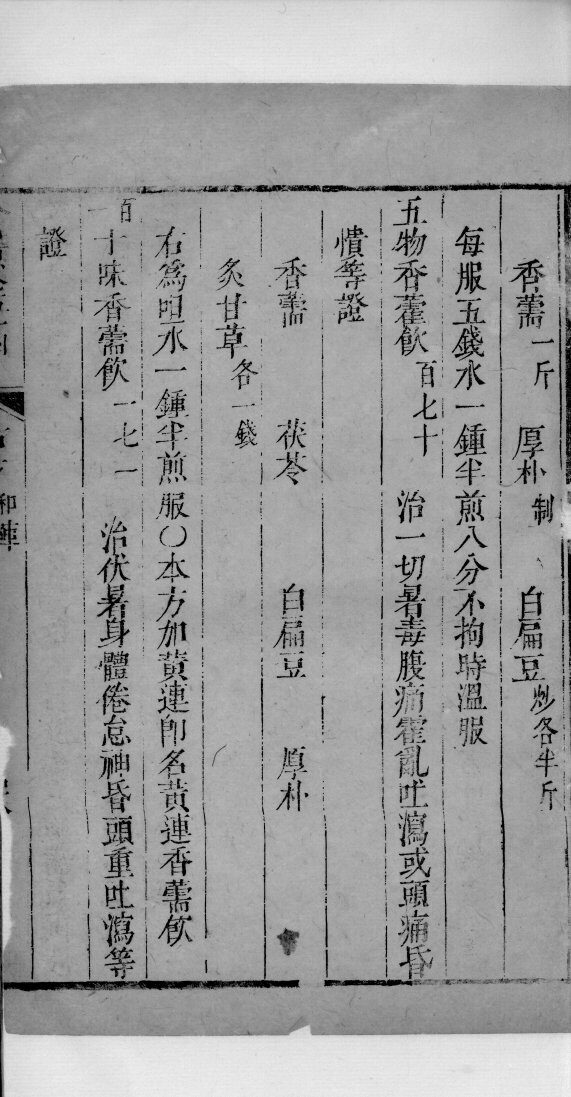 香薷一斤　厚朴制　白扁豆炒各半斤
每服五錢水一鍾半煎八分不拘時溫服
五物香薷飲百七十　治一切暑毒腹痛霍亂吐瀉或頭痛昏
憒等證
香薷　茯苓　白扁豆　厚朴
炙甘草各一錢
右㕮咀水一鍾半煎服〇本方加黃連即名黃連香薷飲
十味香薷飲百一七一　治伏暑身體倦怠神昏頭重吐瀉等
證
和陣